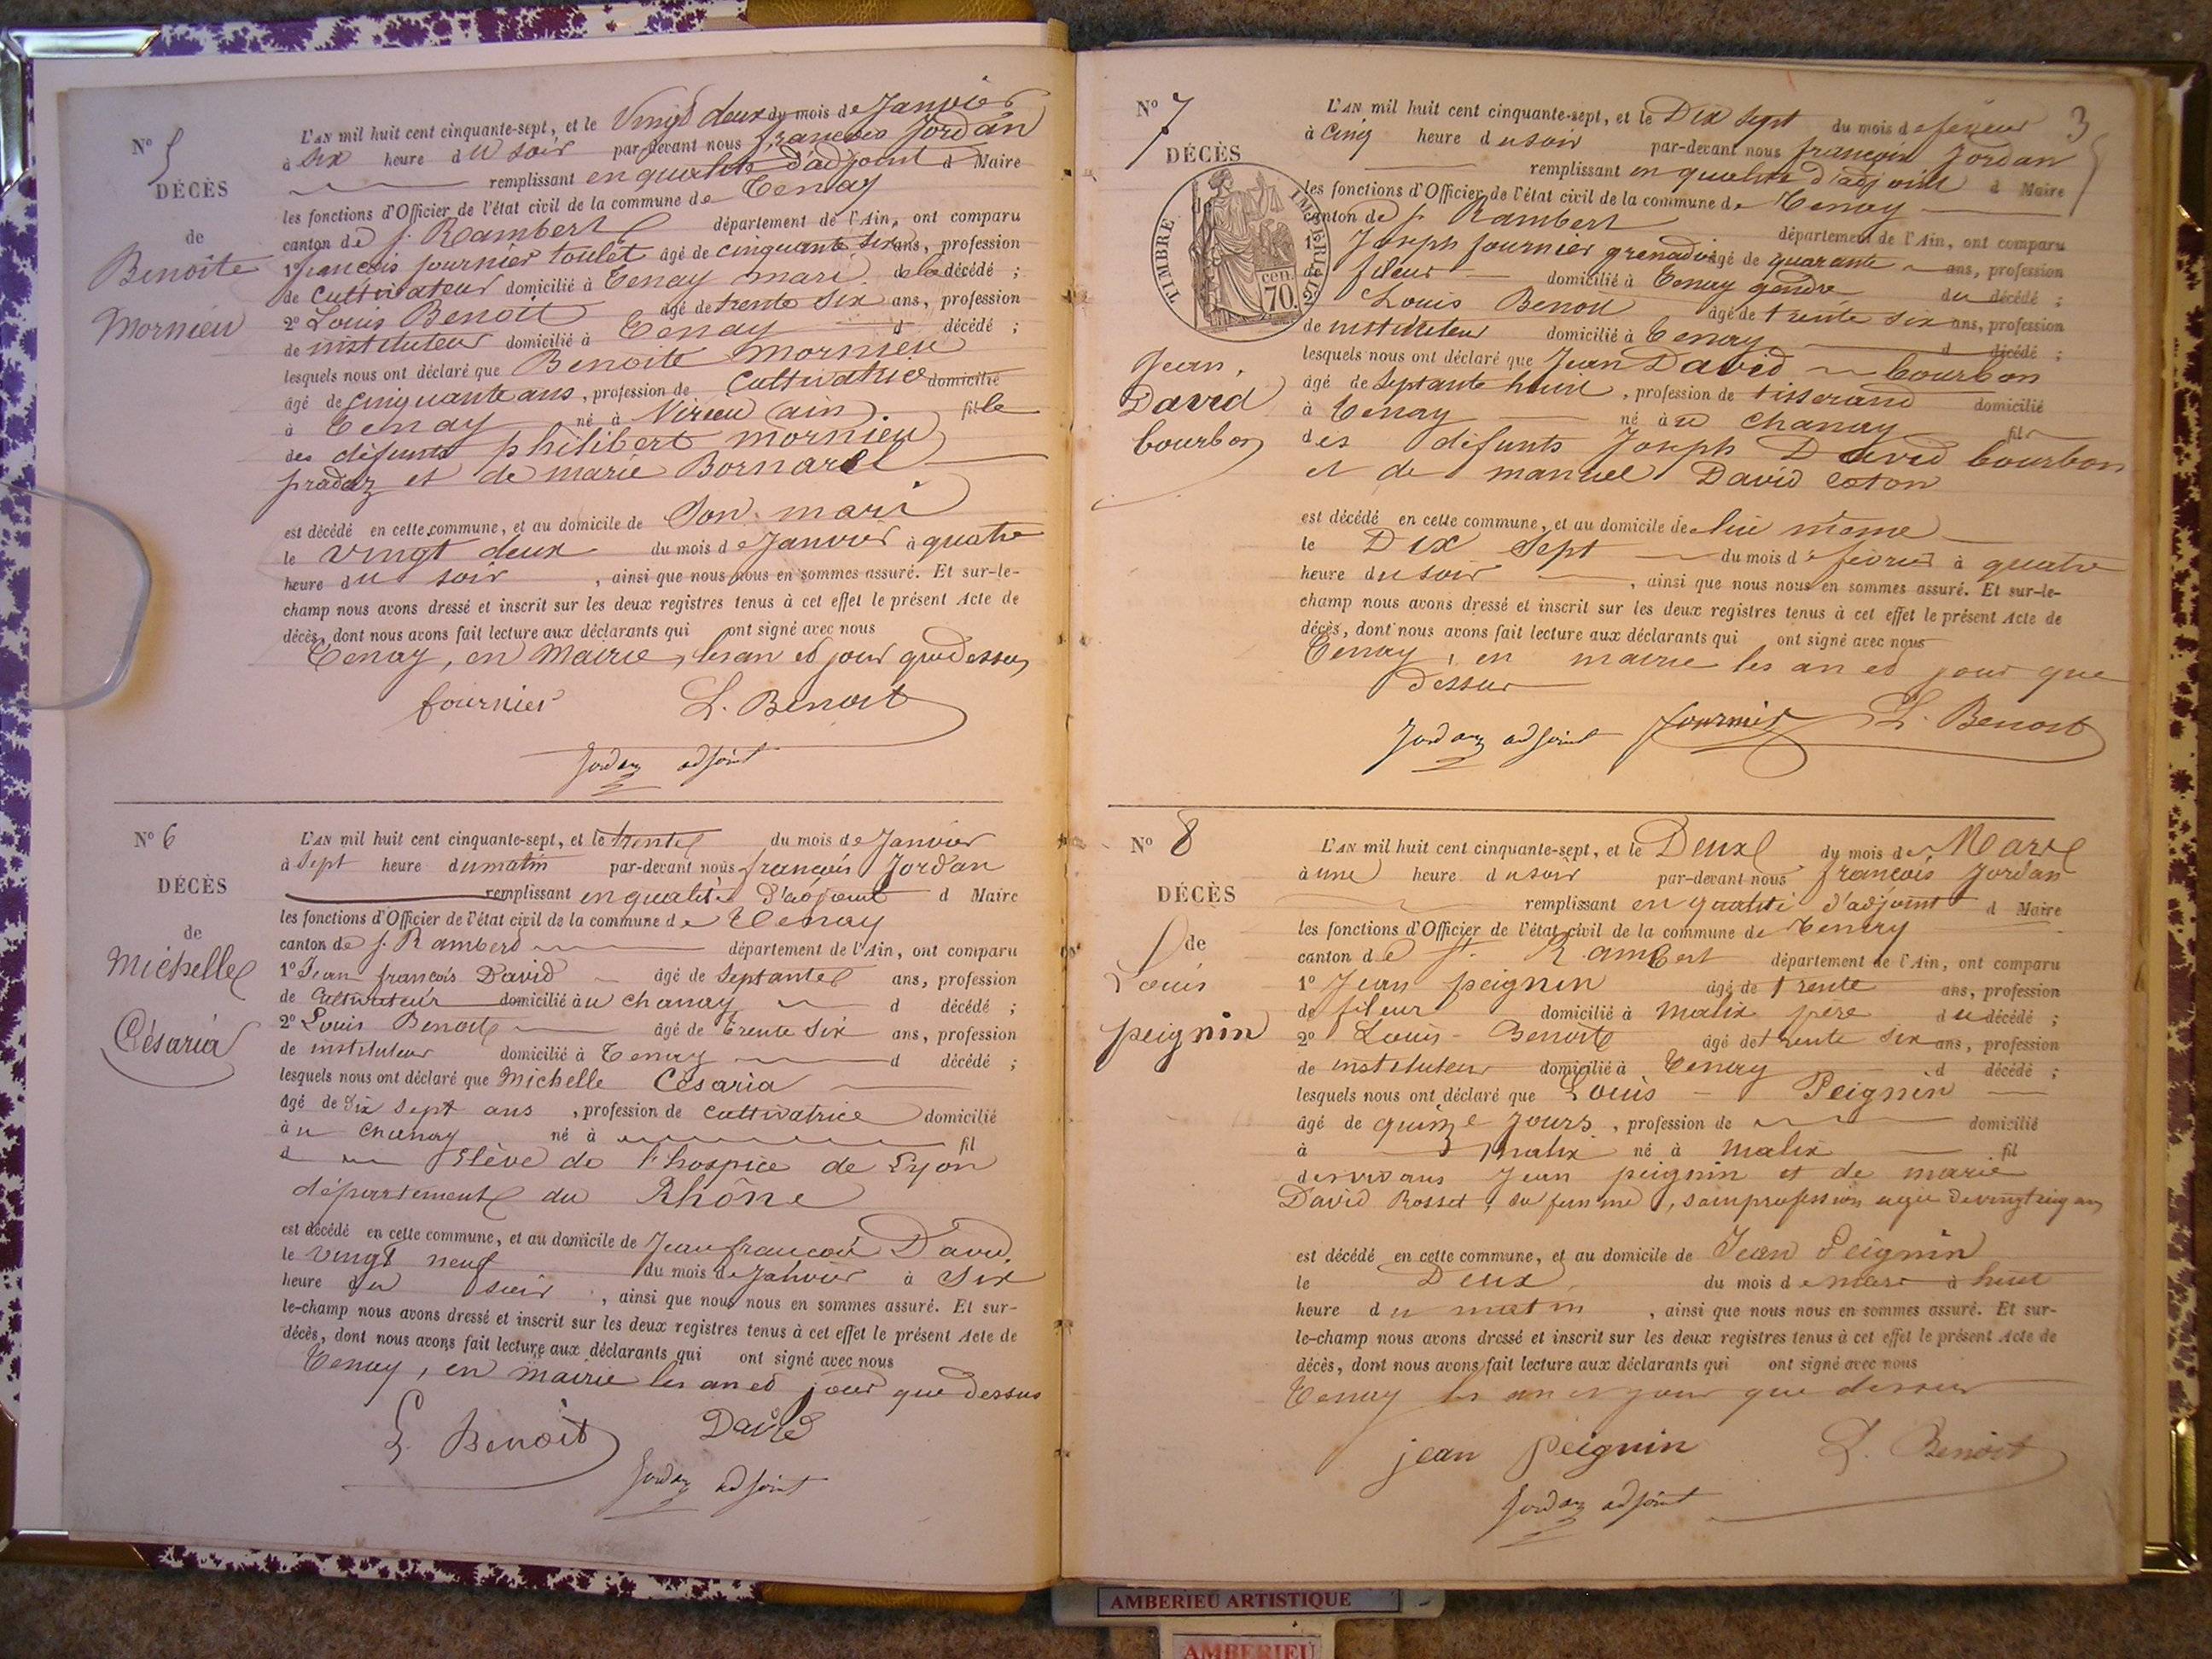 N° 5
DÉCÈS
de
Benoite
Mornieu
L'AN mil huit cent cinquante-sept, et le Vingt deux du mois de Janvier
à six heure du soir par-devant nous françois Jordan
remplissant en qualité d'adjoint d Maire
les fonctions d'Officier de l'état civil de la commune de Tenay
canton de S. Rambert département de l'Ain, ont comparu
1° françois fournier toulet âgé de cinquante six ans, profession
de Cultivateur domicilié à Tenay mari de la décédé ;
2° Louis Benoit âgé de trente six ans, profession
de instituteur domicilié à Tenay d décédé ;
lesquels nous ont déclaré que Benoite Mornieu
âgé de Cinquante ans, profession de Cultivatrice domicilié
à Tenay né à Virieu (ain). fille
des défunts philibert mornieu
pradaz et de marie Bornarel
est décédé en cette commune, et au domicile de Son mari
le vingt deux du mois de Janvier à quatre
heure du soir, ainsi que nous nous en sommes assuré. Et sur-le-
champ nous avons dressé et inscrit sur les deux registres tenus à cet effet le présent Acte de
décès, dont nous avons fait lecture aux déclarants qui ont signé avec nous
Tenay, en Mairie, les an et jour que dessus
fournier L. Benoit
Jordan adjoint
N° 6
DÉCÈS
de
Michelle
Césaria
L'AN mil huit cent cinquante-sept, et le trente du mois de Janvier
à Sept heure du matin par-devant nous françois Jordan
remplissant en qualité d'adjoint d Maire
les fonctions d'Officier de l'état civil de la commune de Tenay
canton de S. Rambert département de l'Ain, ont comparu
1° Jean françois David âgé de Septante ans, profession
de Cultivateur domicilié à u chanay d décédé ;
2° Louis Benoit âgé de trente Six ans, profession
de instituteur domicilié à Tenay d décédé ;
lesquels nous ont déclaré que Michelle Césaria
âgé de Dix sept ans, profession de cultivatrice domicilié
à u chanay né à fil
d Elève de l'hospice de Lyon
département du Rhône
est décédé en cette commune, et au domicile de Jean françois David
le vingt neuf du mois de Janvier à Six
heure du soir, ainsi que nous nous en sommes assuré. Et sur-
le-champ nous avons dressé et inscrit sur les deux registres tenus à cet effet le présent Acte de
décès, dont nous avons fait lecture aux déclarants qui ont signé avec nous
Tenay, en mairie les an et jour que dessus
L. Benoit David
Jordan adjoint
3
N° 7
DÉCÈS
TIMBRE IMPERIAL
70 cen.
Jean,
David
bourbon
L'AN mil huit cent cinquante-sept, et le Dix sept du mois de février
à Cinq heure du soir par-devant nous françois Jordan
remplissant en qualité d'adjoint d Maire
les fonctions d'Officier de l'état civil de la commune de Tenay
canton de S. Rambert département de l'Ain, ont comparu
1° Joseph fournier grenadier âgé de quarante ans, profession
de fileur domicilié à Tenay gendre du décédé ;
Louis Benoit âgé de trente six ans, profession
de instituteur domicilié à Tenay d décédé ;
lesquels nous ont déclaré que Jean David bourbon
âgé de Septante huit, profession de tisserand domicilié
à Tenay né à u chanay fils
des défunts Joseph David bourbon
et de manuel David Coton
est décédé en cette commune, et au domicile de lui même
le Dix Sept du mois de février à quatre
heure du soir, ainsi que nous nous en sommes assuré. Et sur-le-
champ nous avons dressé et inscrit sur les deux registres tenus à cet effet le présent Acte de
décès, dont nous avons fait lecture aux déclarants qui ont signé avec nous
Tenay, en mairie les an et jour que
dessus
Jordan adjoint fournier L. Benoit
N° 8
DÉCÈS
de
Louis
peignin
L'AN mil huit cent cinquante-sept, et le Deux du mois de Mars
à une heure du soir par-devant nous françois Jordan
remplissant en qualité d'adjoint d Maire
les fonctions d'Officier de l'état civil de la commune de Tenay
canton de St. Rambert département de l'Ain, ont comparu
1° Jean peignin âgé de trente ans, profession
de fileur domicilié à malix père du décédé ;
2° Louis Benoit âgé de trente six ans, profession
de instituteur domicilié à Tenay d décédé ;
lesquels nous ont déclaré que Louis Peignin
âgé de quinze Jours, profession de domicilié
à malix né à malix fil
des vivans Jean peignin et de marie
David Rosset, sa femme, sans profession agée de vingt cinq ans
est décédé en cette commune, et au domicile de Jean Peignin
le Deux du mois de mars à huit
heure du matin, ainsi que nous nous en sommes assuré. Et sur-
le-champ nous avons dressé et inscrit sur les deux registres tenus à cet effet le présent Acte de
décès, dont nous avons fait lecture aux déclarants qui ont signé avec nous
Tenay les an et jour que dessus
jean peignin L. Benoit
Jordan adjoint
AMBERIEU ARTISTIQUE
AMBERIEU